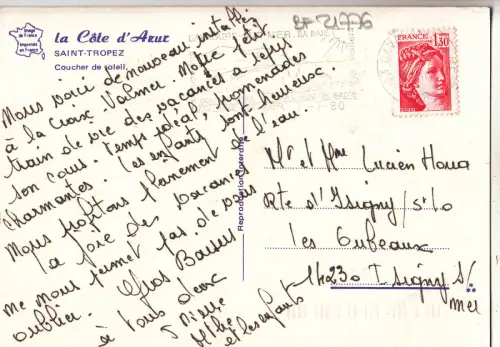 Image de France
Imprimée en France
la Côte d'Azur
SAINT-TROPEZ
Coucher de soleil
BF 21776
FRANCE
1,30
80
Nous voici de nouveau installés
à la Croix Valmer. Notre petit
train de vie des vacances a repris
son cours. Temps idéal, promenades
charmantes. Les enfants sont heureux.
Nous profitons pleinement de l'eau.
La joie des vacances
ne nous permet pas de vous
oublier. Gros Baisers
à tous deux
et les enfants
Reproduction interdite
Mr et Mme Lucien
Rte d'Isigny s/
les Oubeaux
14230 Isigny s/
mer